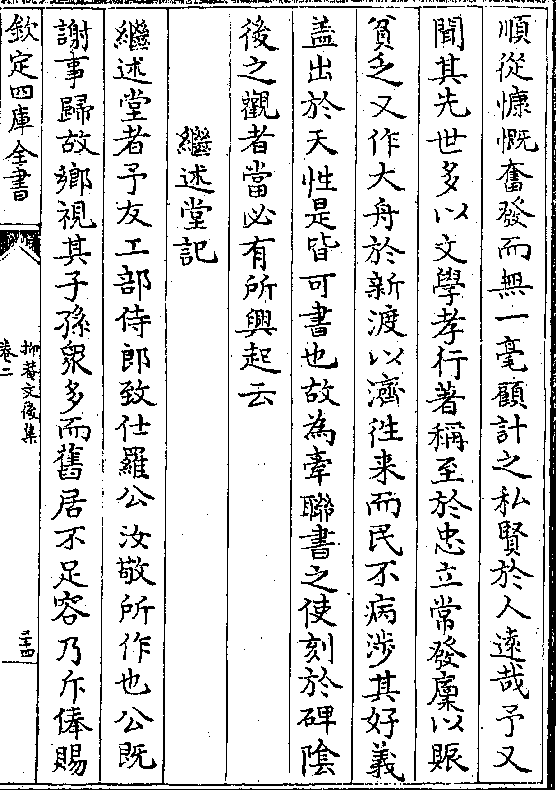 順從慷慨奮發而無一毫顧計之私賢於人逺哉予又
聞其先世多以文學孝行著稱至於忠立常發廩以賑
貧乏又作大舟於新渡以濟徃来而民不病涉其好義
蓋出於天性是皆可書也故為牽聯書之使刻於碑陰
後之觀者當必有所興起云
繼述堂記
繼述堂者予友工部侍郎致仕羅公汝敬所作也公既
謝事歸故鄉視其子孫衆多而舊居不足容乃斥俸賜
欽定四庫全書
抑菴文後集
卷二
三十四